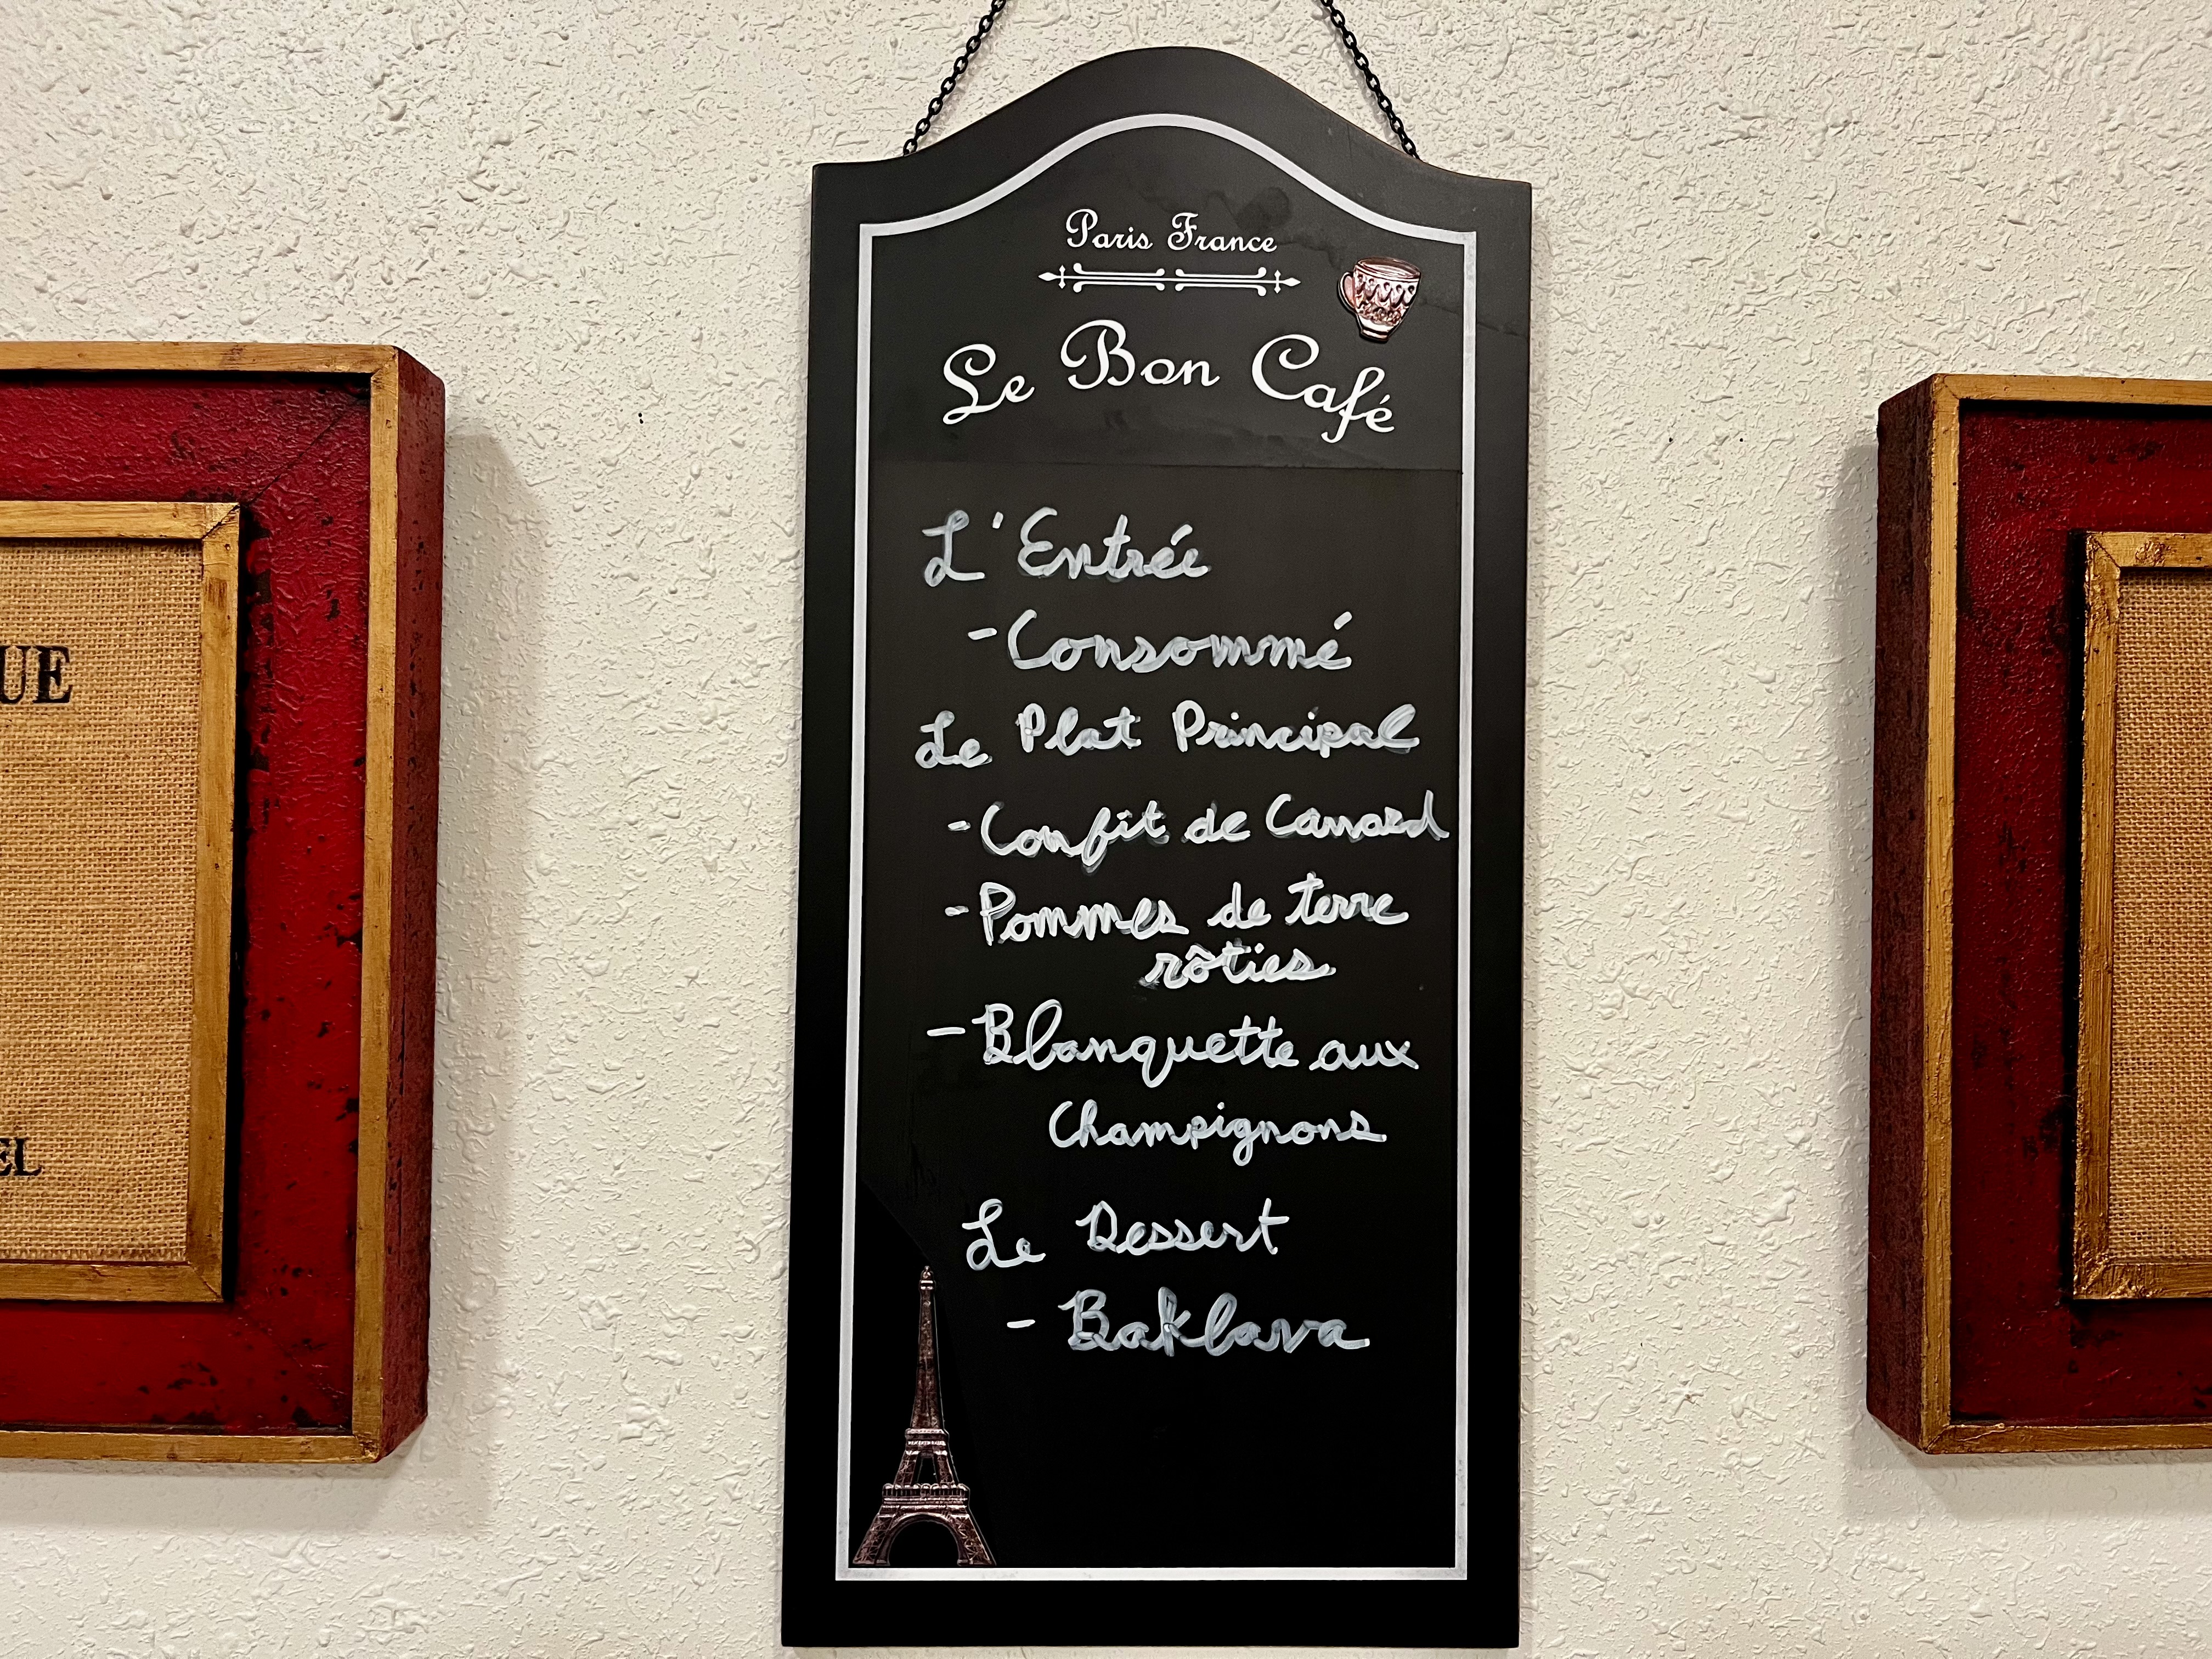 Paris France
Le Bon Café
L'Entrée
-Consommé
Le Plat Principal
-Confit de Canard
-Pommes de terre
rôties
-Blanquette aux
Champignons
Le Dessert
- Baklava
UE
EL